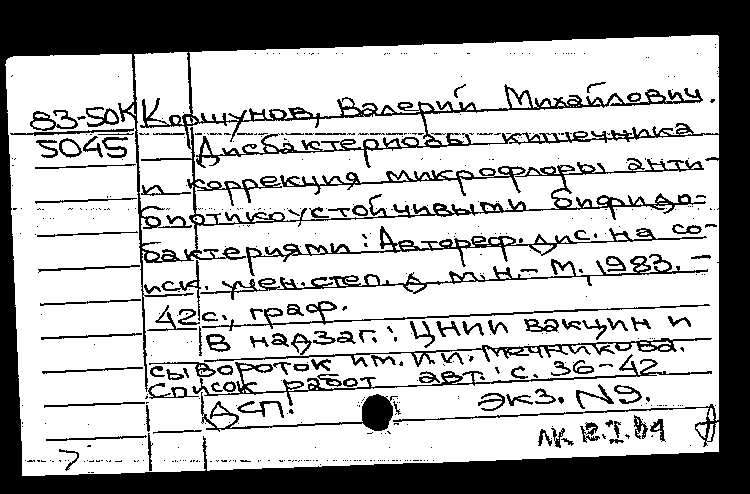 83-50К Коршунов, Валерий Михайлович.
5045 Дисбактериозы кишечника
и коррекция микрофлоры анти-
биотикоустойчивыми бифидо=
бактериями: Автореф. дис. на со-
иск. учен. степ. д. м. н. - М., 1983. -
42 с., граф.
В надзаг.: ЦНИИ вакцин и
сывороток им. И. И. Мечникова.
Список работ авт.: с. 36-42.
ДСП! экз. N9.